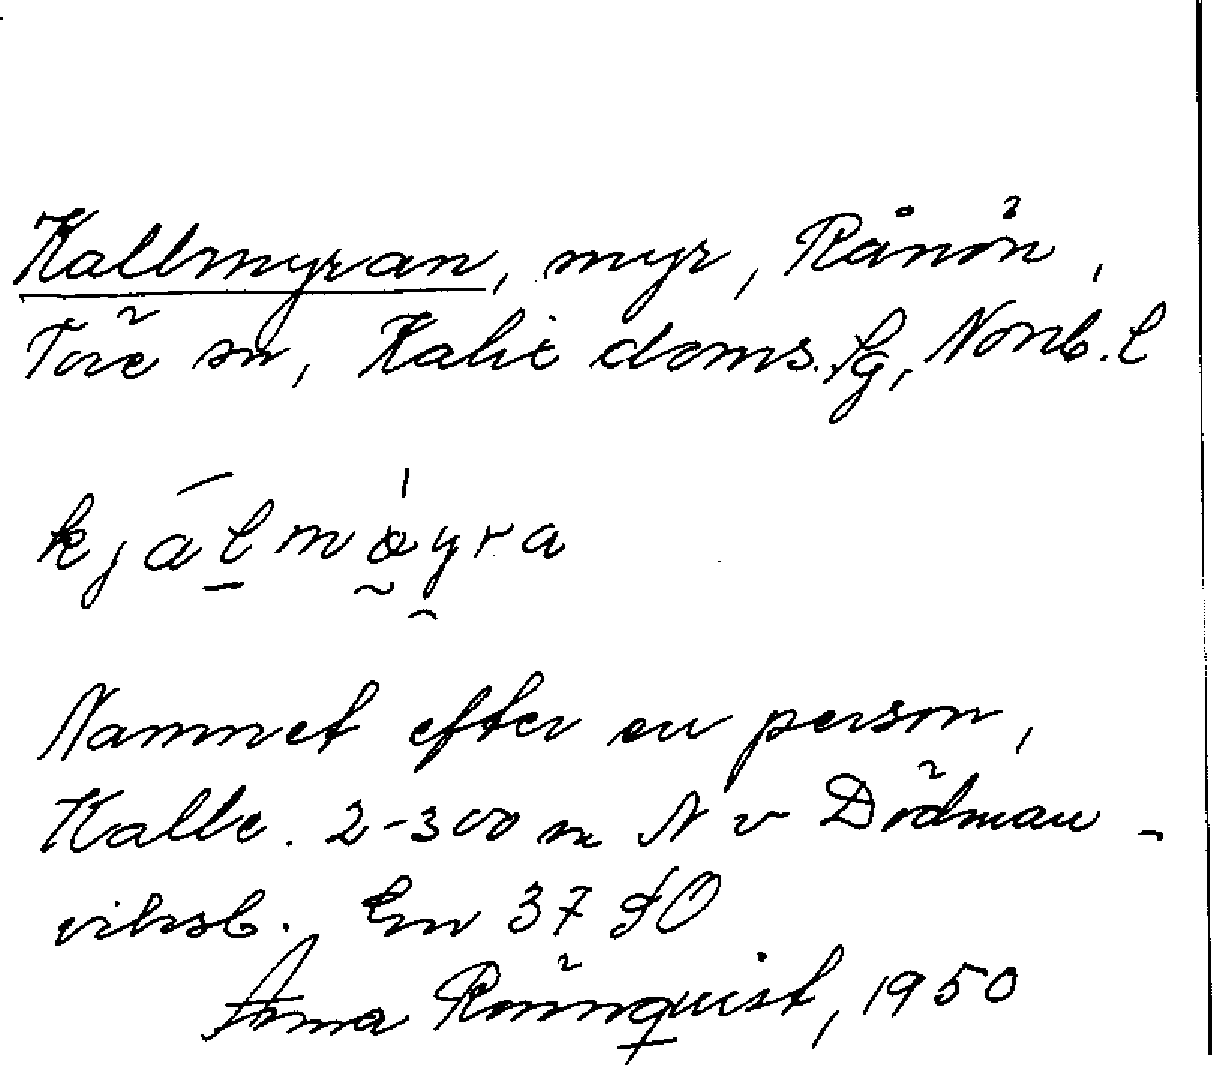 Kallmyran, myr, Rånön,
Töre sn, Kalix doms.sg, Norrb. l
kjálmöyra
Namnet efter en person,
Kalle. 2-300 m N v Dödman-
viksb. En 37 SO
Anna Rönnquist, 1950